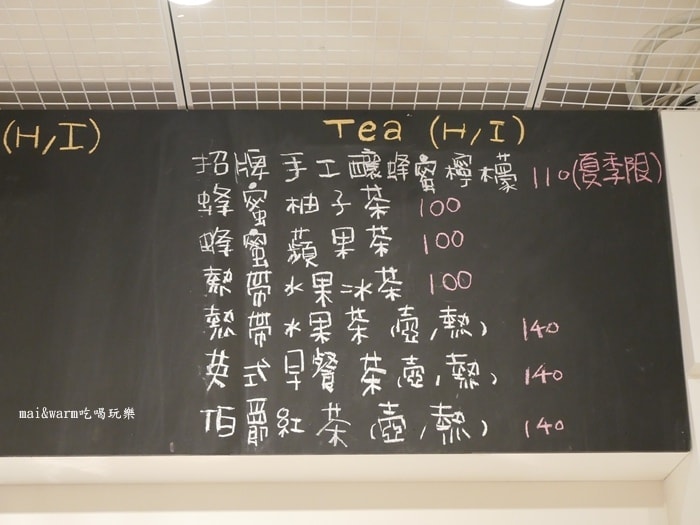 (H/I)
Tea (H/I)
招牌手工釀蜂蜜檸檬 110(夏季限)
蜂蜜柚子茶 100
蜂蜜蘋果茶 100
熱帶水果冰茶 100
熱帶水果茶(壺/熱) 140
英式早餐茶(壺/熱) 140
伯爵紅茶(壺/熱) 140
mai&warm吃喝玩樂